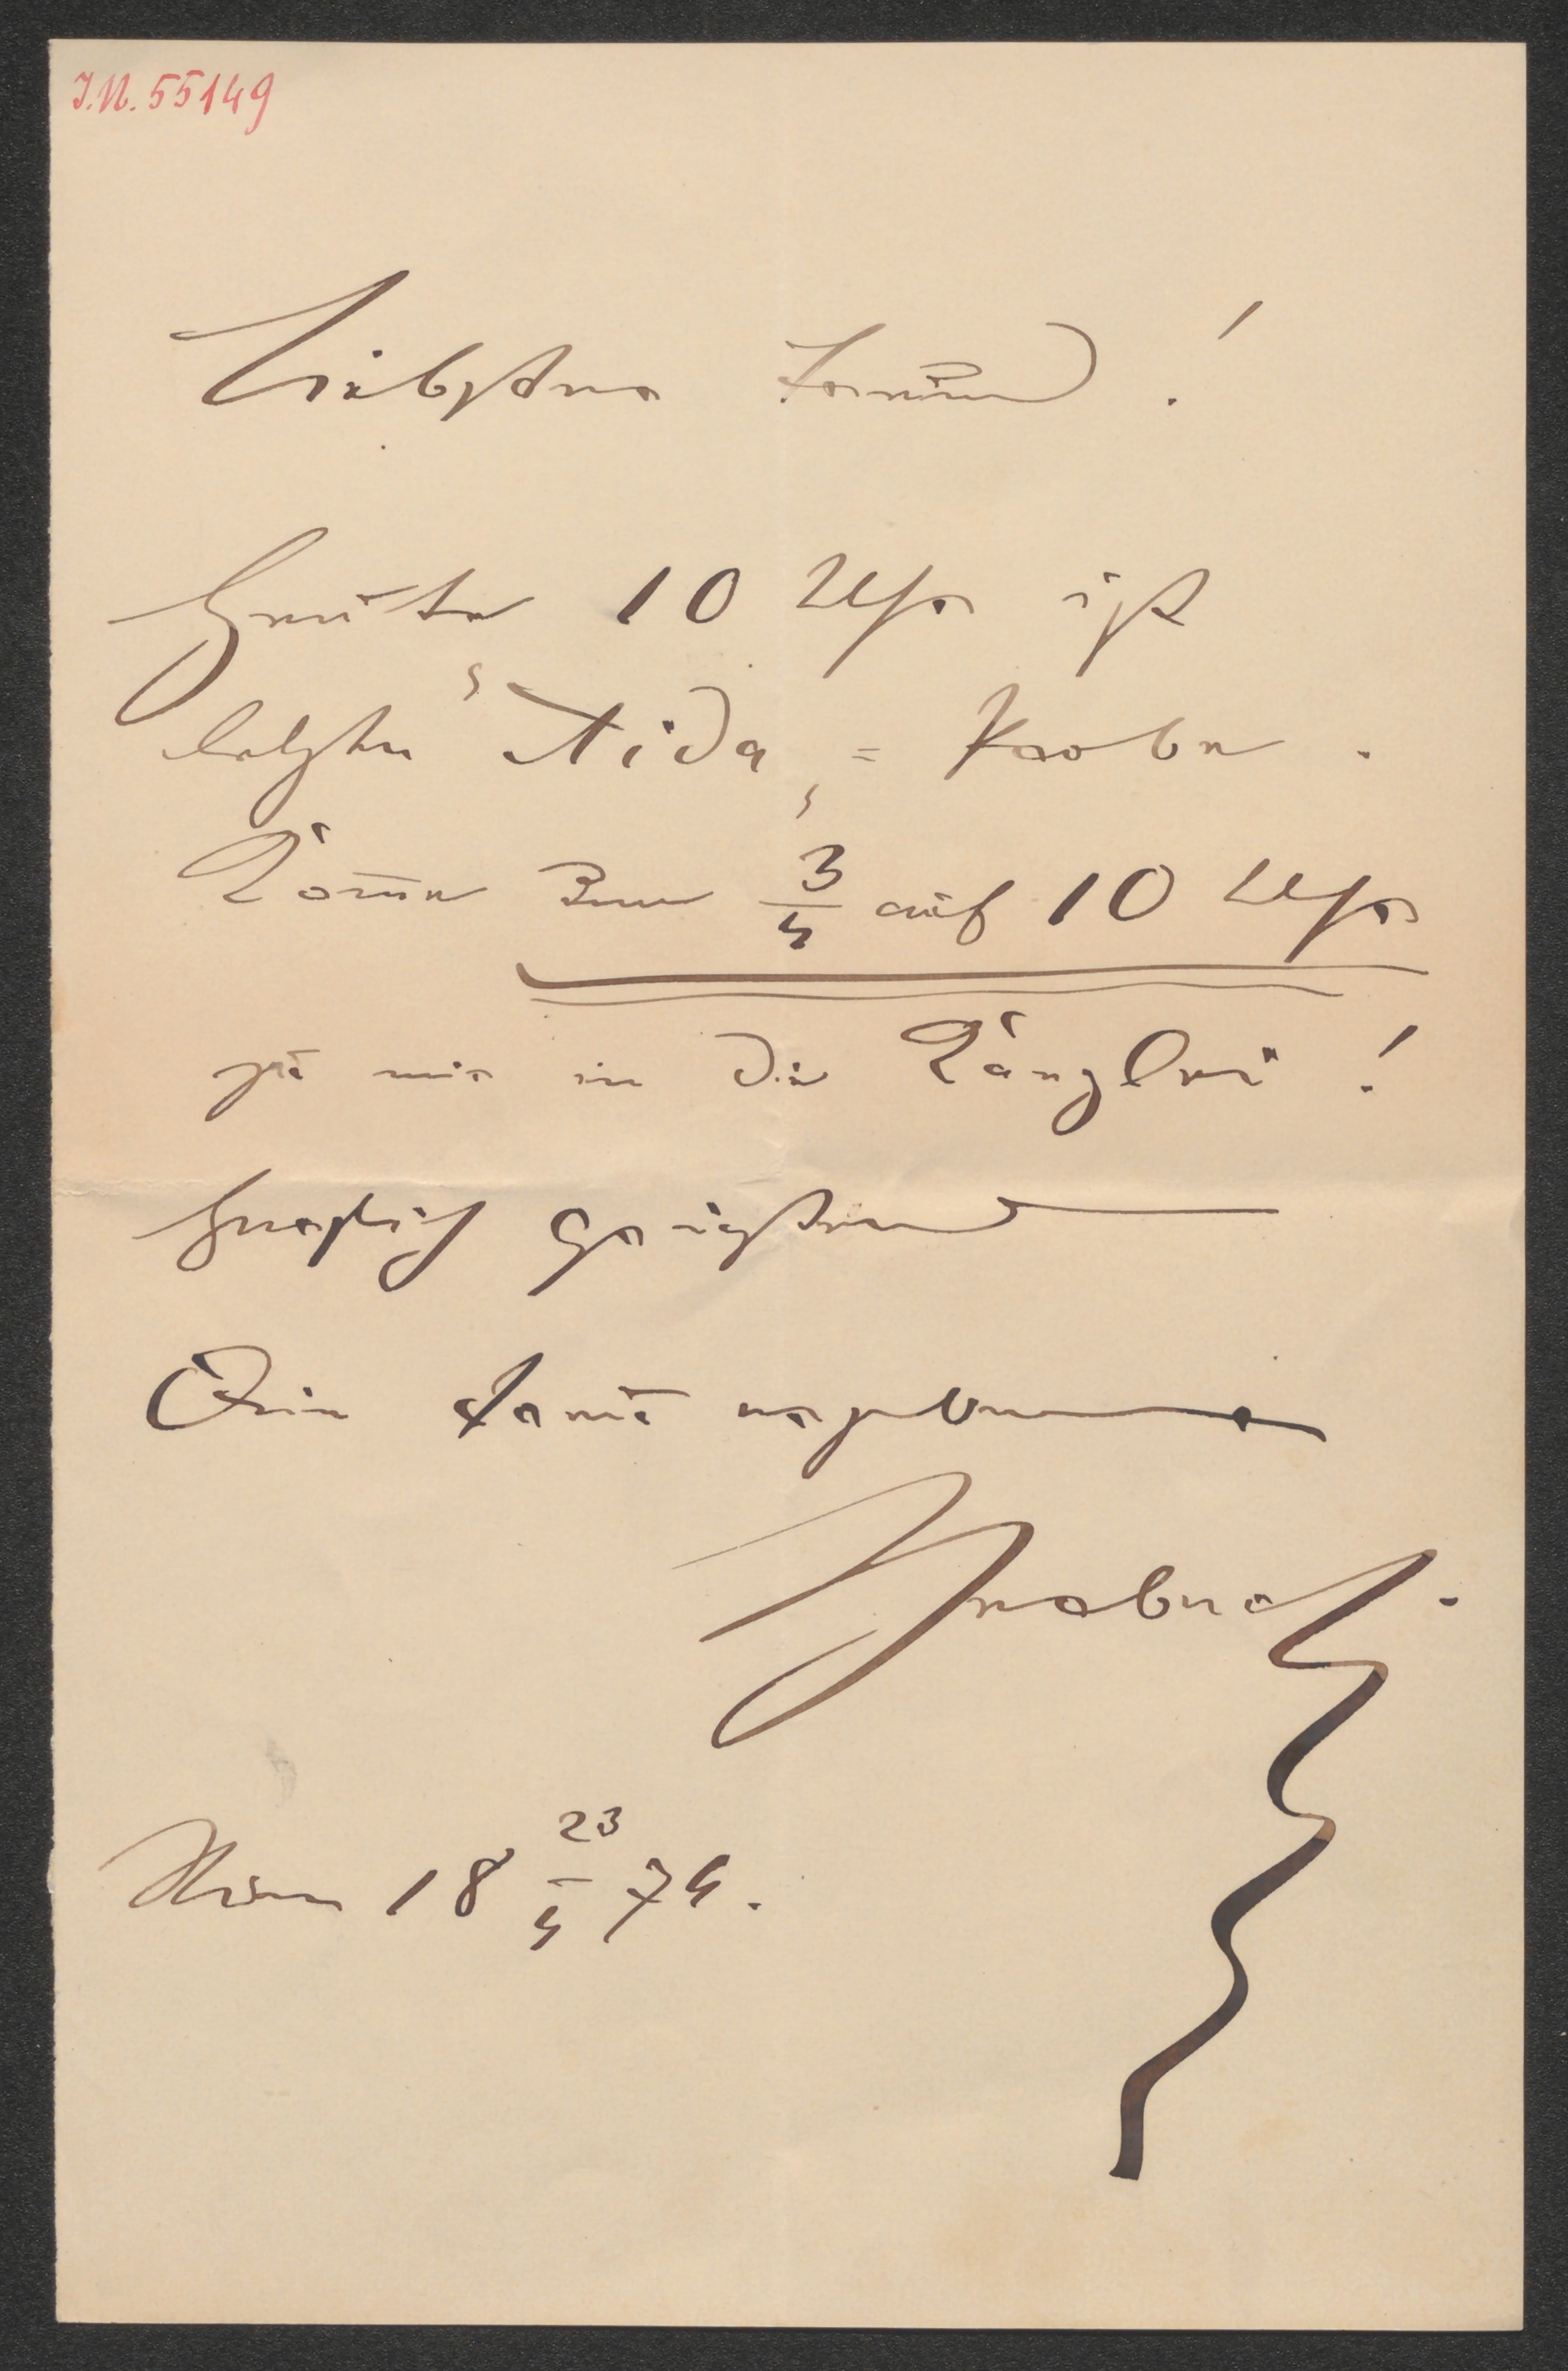 I.N. 55149
Liebster Freund!
Heute 10 Uhr ist
letzte "Aida"= Probe.
Kom̄e 3/4 auf 10 Uhr
zu mir in die Kanzlei!
Herzlich grüßend
Dein treu ergebener
Herbeck.
Wien 18 23/4 74.